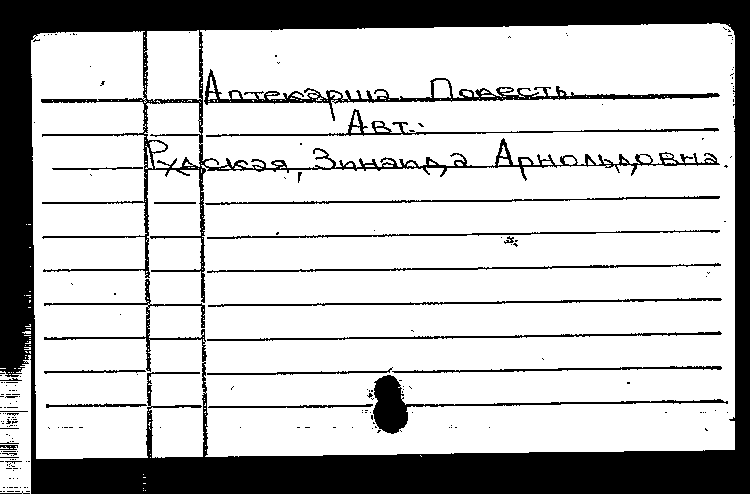 Аптекарша. Повесть.
Авт.:
Рудская, Зинаида Арнольдовна.